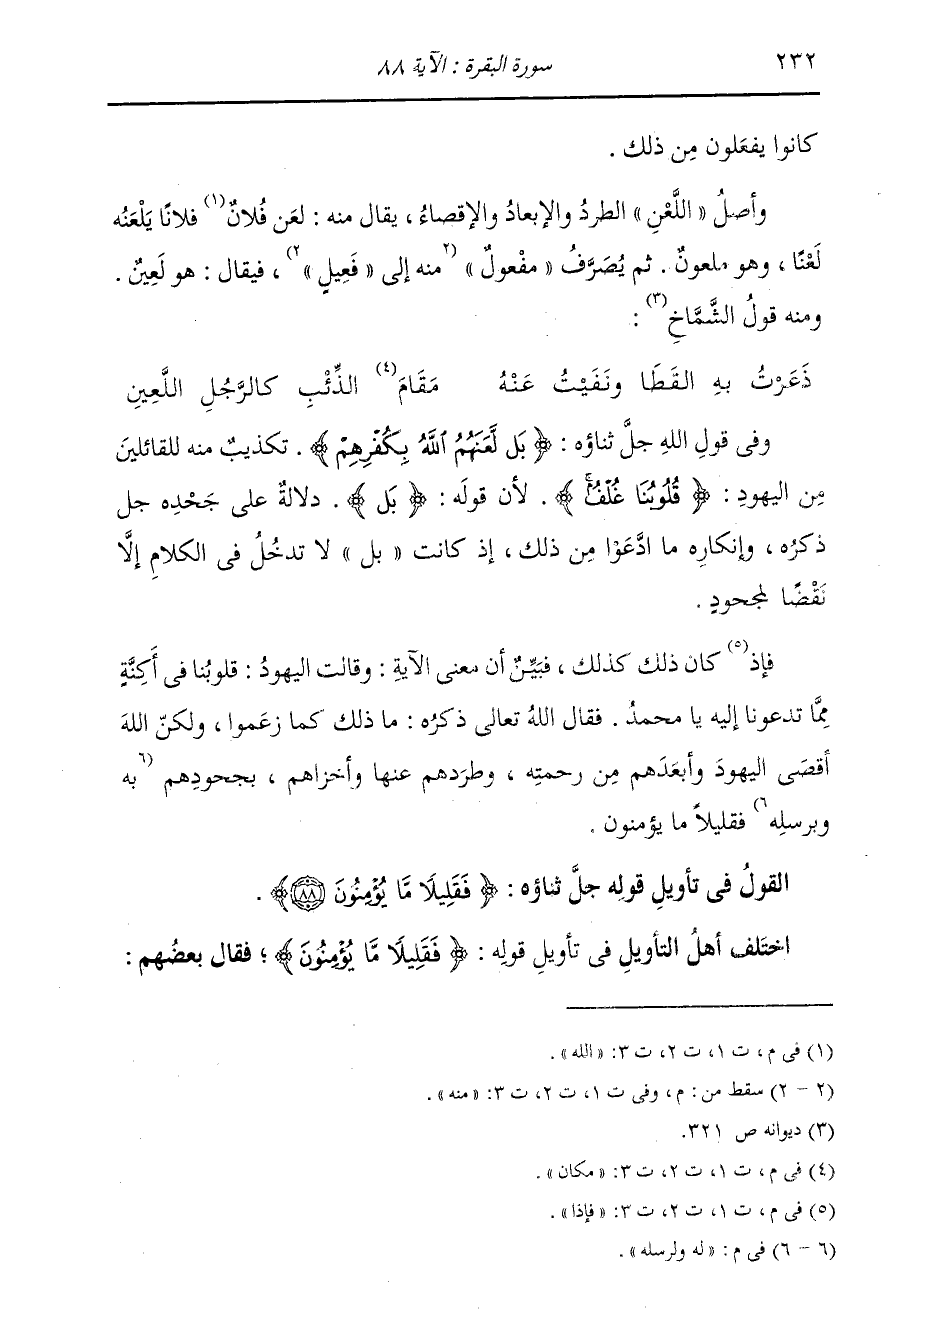 ٢٣٢ سورة البقرة : الآية ٨٨
كانوا يفعَلون مِن ذلك .
وأصلُ « اللَّعْنِ » الطردُ والإبعادُ والإقصاءُ ، يقال منه : لعَن فُلانٌ(١) فلانًا يَلْعَنُه
لَعْنًا ، وهو ملعونٌ . ثم يُصَرَّفُ « مفْعولٌ » (٢منه إلى « فَعِيلٍ »٢) ، فيقال : هو لَعِينٌ .
ومنه قولُ الشَّمَّاخِ(٣) :
ذَعَرْتُ بهِ القَطَا ونَفَيْتُ عَنْهُ مَقَامَ(٤) الذِّئْبِ كالرَّجُلِ اللَّعِينِ
وفى قولِ اللهِ جلَّ ثناؤه : ﴿ بَل لَّعَنَهُمُ ٱللَّهُ بِكُفْرِهِمْ ﴾ . تكذيبٌ منه للقائلينَ
مِن اليهودِ : ﴿ قُلُوبُنَا غُلْفٌۢ ﴾ . لأن قولَه : ﴿ بَل ﴾ . دلالةٌ على جَحْدِه جل
ذكرُه ، وإنكارِه ما ادَّعَوْا مِن ذلك ، إذ كانت « بل » لا تدخُلُ فى الكلامِ إلَّا
نَقْضًا لمجحودٍ .
فإذ(٥) كان ذلك كذلك ، فبَيِّنٌ أن معنى الآيةِ : وقالت اليهودُ : قلوبُنا فى أَكِنَّةٍ
مِمَّا تدعونا إليه يا محمدُ . فقال اللهُ تعالى ذكرُه : ما ذلك كما زعَموا ، ولكنّ اللهَ
أقصَى اليهودَ وأبعَدَهم مِن رحمتِه ، وطرَدهم عنها وأخزاهم ، بجحودِهم (٦به
وبرسلِه٦) فقليلاً ما يؤمنون .
القولُ فى تأويلِ قولِه جلَّ ثناؤه : ﴿ فَقَلِيلًا مَّا يُؤْمِنُونَ ٨٨ ﴾ .
اختَلف أهلُ التأويلِ فى تأويلِ قولِه : ﴿ فَقَلِيلًا مَّا يُؤْمِنُونَ ﴾ ؛ فقال بعضُهم :
(١) فى م، ت ١، ت ٢، ت ٣: « الله » .
(٢ - ٢) سقط من : م ، وفى ت ١، ت ٢، ت ٣: « منه » .
(٣) ديوانه ص ٣٢١.
(٤) فى م، ت ١، ت ٢، ت ٣: « مكان » .
(٥) فى م، ت ١، ت ٢، ت ٣: « فإذا » .
(٦ - ٦) فى م : « له ولرسله » .